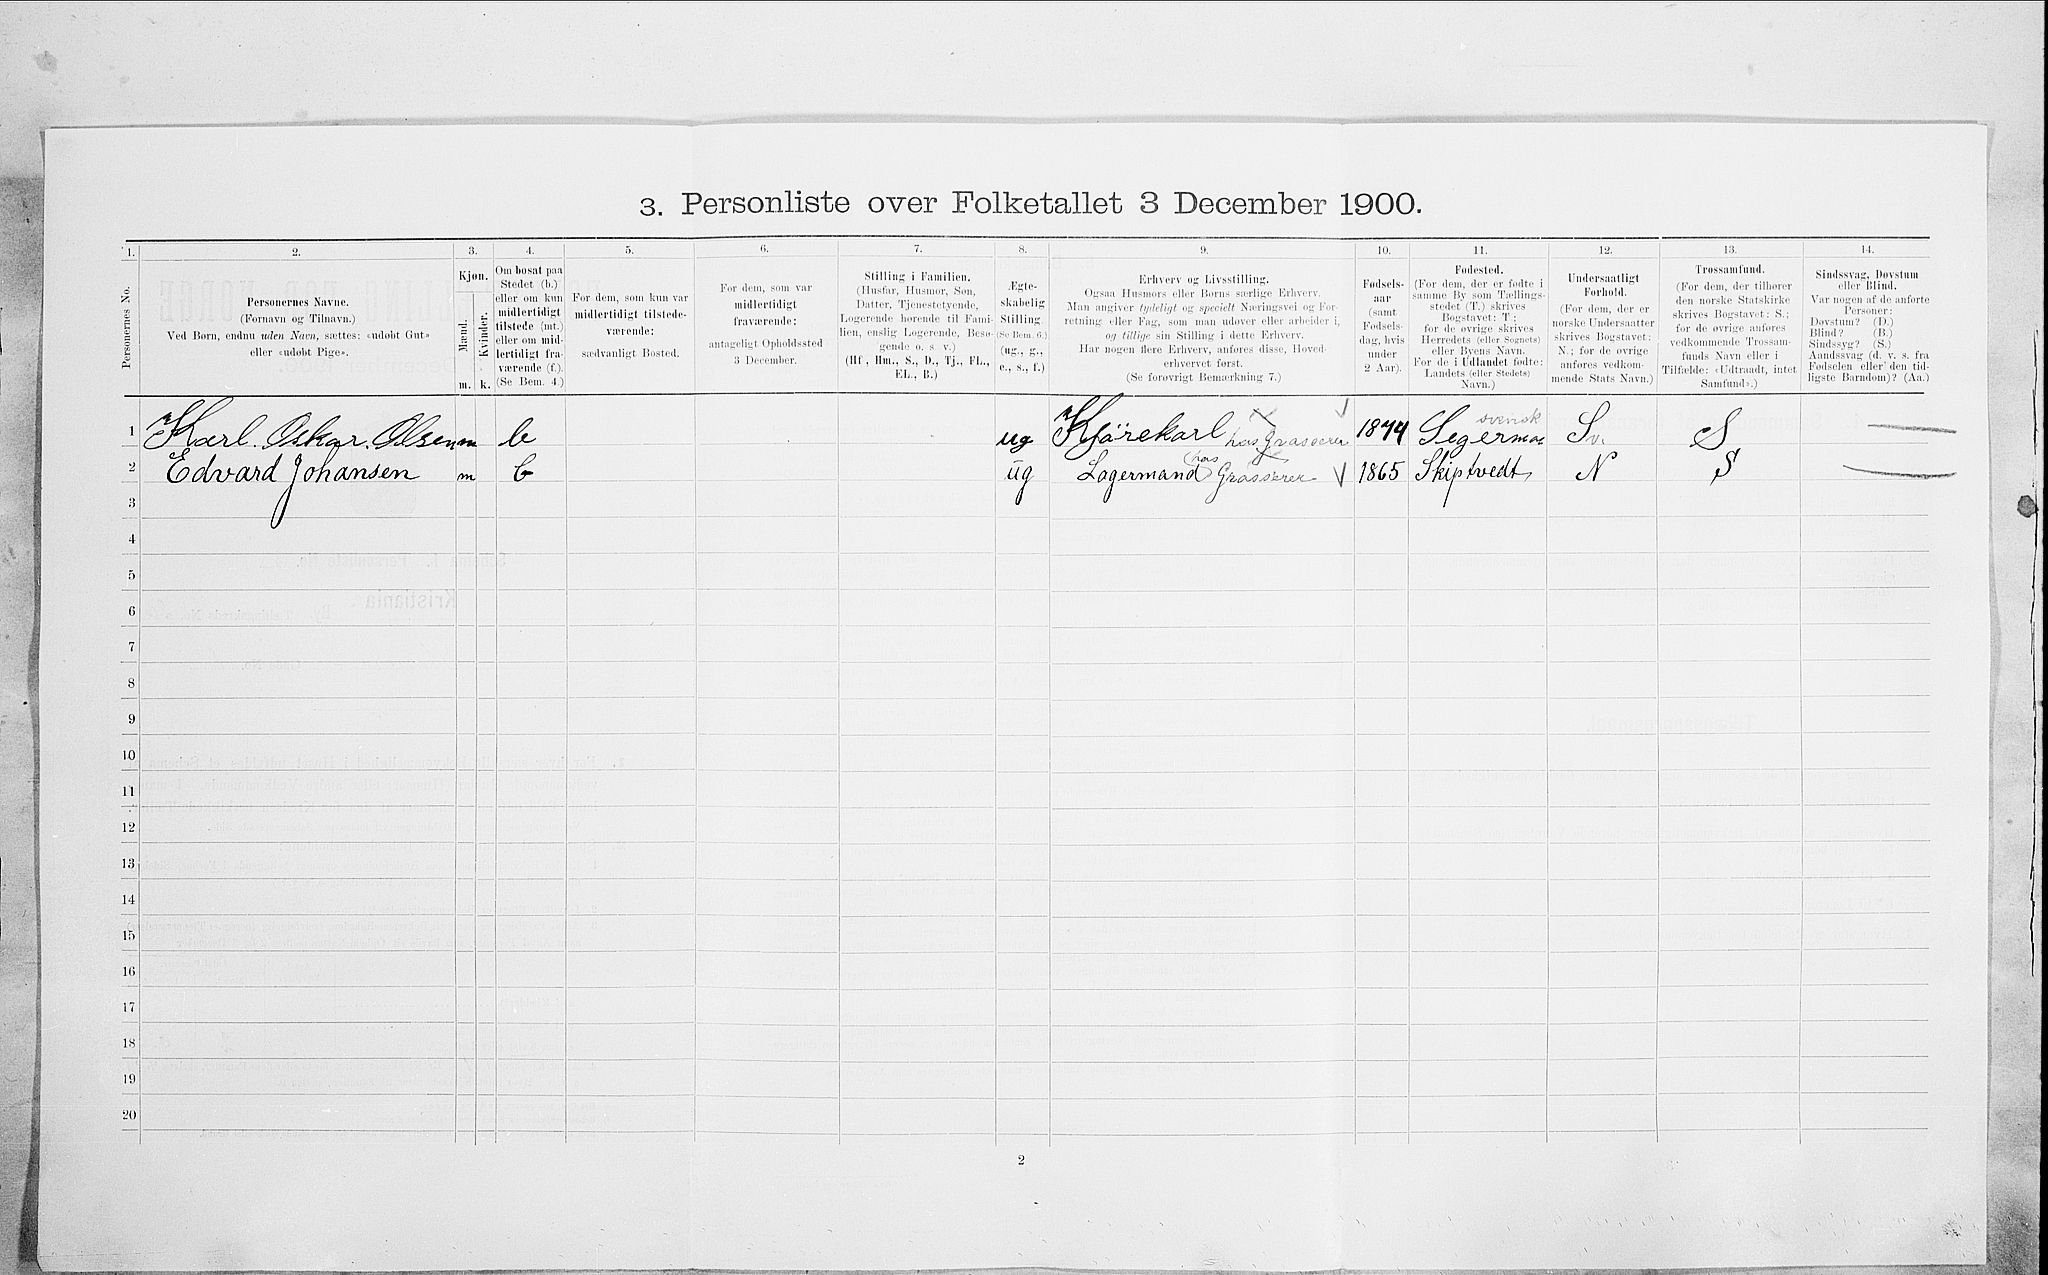 3. Personliste over Folketallet 3 December 1900.
1. 2. 3. 4. 5. 6. 7. 8. 9. 10. 11. 12. 13. 14.
Personernes No.
Personernes Navne.
(Fornavn og Tilnavn.)
Ved Børn, endnu uden Navn, sættes: «udøbt Gut»
eller «udøbt Pige».
Kjøn.
Mænd.
Kvinder.
m. k.
Om bosat paa
Stedet (b.)
eller om kun
midlertidigt
tilstede (mt.)
eller om mid-
lertidigt fra-
værende (f.).
(Se Bem. 4.)
For dem, som kun var
midlertidigt tilstede-
værende:
sædvanligt Bosted.
For dem, som var
midlertidigt
fraværende:
antageligt Opholdssted
3 December.
Stilling i Familien.
(Husfar, Husmor, Søn,
Datter, Tjenestetyende,
Logerende hørende til Fami-
lien, enslig Logerende, Besø-
gende o. s. v.)
(Hf., Hm., S., D., Tj., FL.,
EL., B.)
Ægte-
skabelig
Stilling.
(Se Bem. 6.)
(ug., g.,
e., s., f.)
Erhverv og Livsstilling.
Ogsaa Husmors eller Børns særlige Erhverv.
Man angiver tydeligt og specielt Næringsvei og For-
retning eller Fag, som man udøver eller arbeider i,
og tillige sin Stilling i dette Erhverv.
Har nogen flere Erhverv, anføres disse, Hoved-
erhvervet først.
(Se forøvrigt Bemærkning 7.)
Fødsels-
aar
(samt
Fødsels-
dag, hvis
under
2 Aar).
Fødested.
(For dem, der er fødte i
samme By som Tællings-
stedet (T.) skrives
Bogstavet: T;
for de øvrige skrives
Herredets (eller Sognets)
eller Byens Navn.
For de i Udlandet fødte:
Landets (eller Stedets)
Navn.)
Undersaatligt
Forhold.
(For dem, der er
norske Undersaatter
skrives Bogstavet:
N.; for de øvrige
anføres vedkom-
mende Stats Navn.)
Trossamfund.
(For dem, der tilhører
den norske Statskirke
skrives Bogstavet: S.;
for de øvrige anføres
vedkommende Trossam-
funds Navn eller i
Tilfælde: «Udtraadt, intet
Samfund».)
Sindssvag, Døvstum
eller Blind.
Var nogen af de anførte
Personer:
Døvstum? (D.)
Blind? (B.)
Sindssyg? (S.)
Aandssvag (d. v. s. fra
Fødselen eller den tid-
ligste Barndom)? (Aa.)
svensk
1 Karl. Oskar. Olsen m b ug Kjørekarl hos Grosserer 1874 Segermoe Sv. S
2 Edvard Johansen m b ug Lagermand hos Grosserer 1865 Skiptvedt N S
3
4
5
6
7
8
9
10
11
12
13
14
15
16
17
18
19
20
2